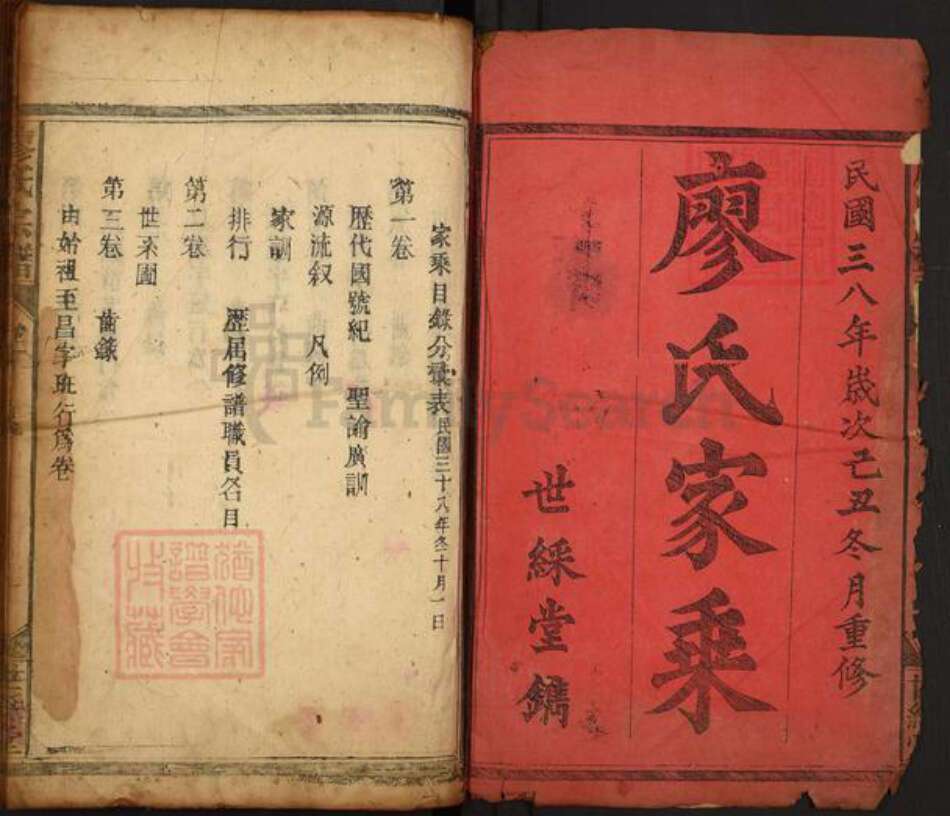 民國三八年歲次己丑冬月重修
廖氏家乘
世綵堂鐫
家乘目錄分發表民國三十八年冬十月一日
第一卷
歷代國號紀 聖諭廣訓
源流叙 凡例
家訓
排行 歷届修譜職員名目
第二卷
世系圖
第三卷 齒錄
由始祖至昌字班行為卷
FamilySearch